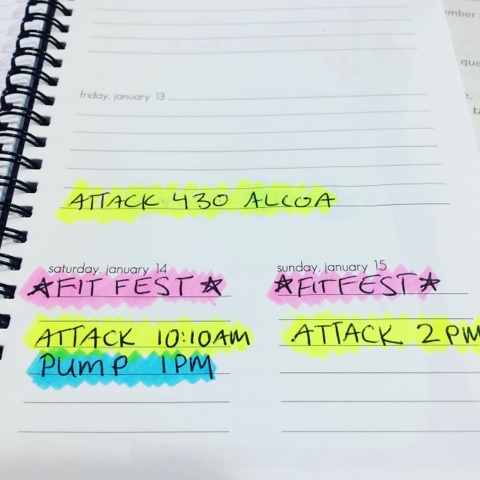 mber
que
e.
ta
friday, january 13
ATTACK 430 ALCOA
saturday, january 14
☆FIT FEST☆
ATTACK 10:10AM
PUMP 1PM
sunday, january 15
☆FITFEST☆
ATTACK 2PM